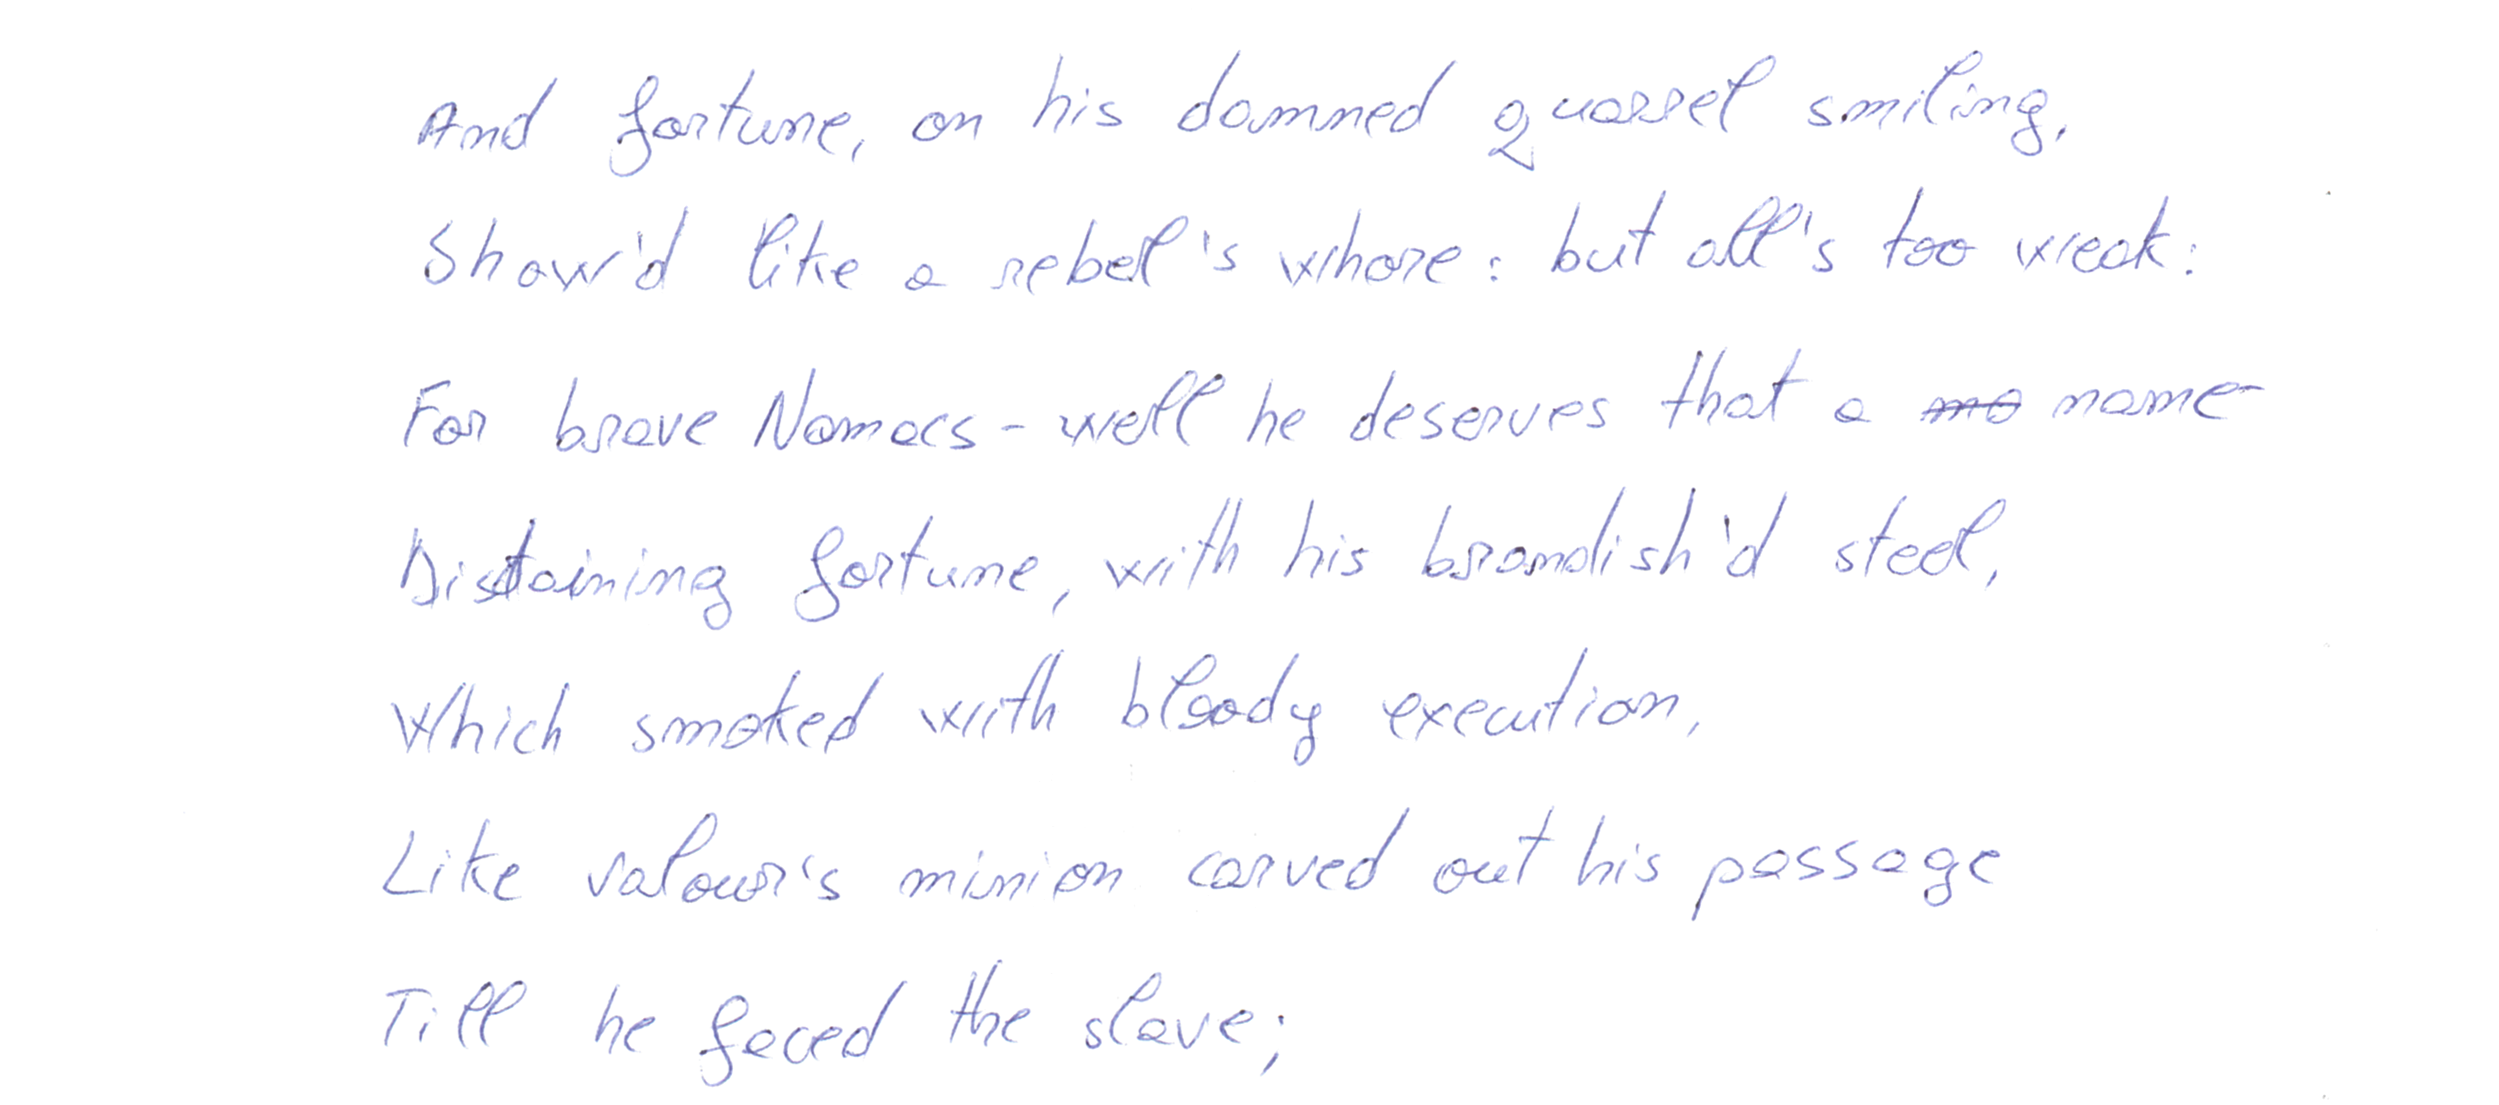 And fortune, on his damned quarrel smiling,
Show'd like a rebel's whore: but all's too weak:
For brave Namacs - well he deserves that a name-
Distaining fortune, with his brandish'd steel,
Which smoked with bloody execution,
Like valour's minion carved out his passage
Till he faced the slave;